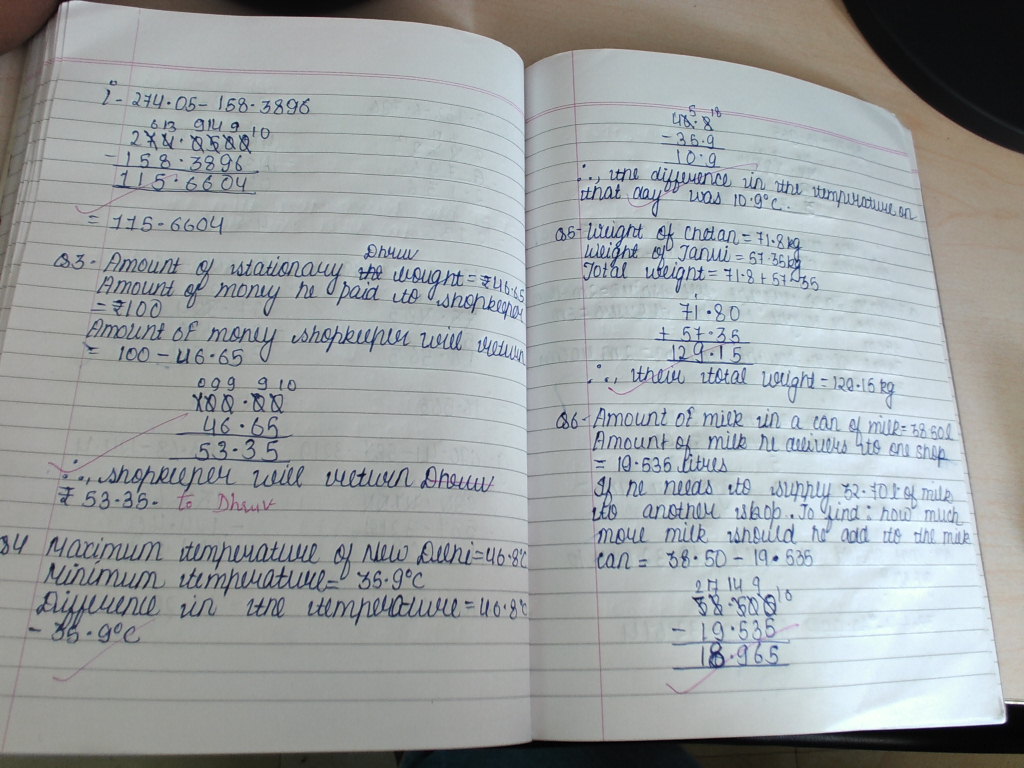 i - 274.05 - 158.3896
6 13 9 14 9 10
274.0500
- 158.3896
115.6604
= 115.6604
Dhruv
Q3 - Amount of stationary bought = ₹46.65
Amount of money he paid to shopkeeper
= ₹100
Amount of money shopkeeper will return
= 100 - 46.65
0 9 9 9 10
100.00
46.65
53.35
∴, shopkeeper will return Dhruv
₹ 53.35. to Dhruv
Q4 Maximum temperature of New Delhi = 46.8°C
Minimum temperature = 35.9°C
Difference in the temperature = 46.8°C
- 35.9°C
5 18
46.8
- 35.9
10.9
∴, the difference in the temperature on
that day was 10.9°C.
Q5 - Weight of Chetan = 71.8 kg
Weight of Tanvi = 57.35 kg
Total weight = 71.8 + 57.35
1
71.80
+ 57.35
129.15
∴, their total weight = 129.15 kg
Q6 - Amount of milk in a can of milk = 38.50 l
Amount of milk he delivers to one shop
= 19.535 litres
If he needs to supply 32.70 l of milk
to another shop. To find: how much
more milk should he add to the milk
can = 38.50 - 19.535
2 17 14 9 10
38.500
- 19.535
18.965